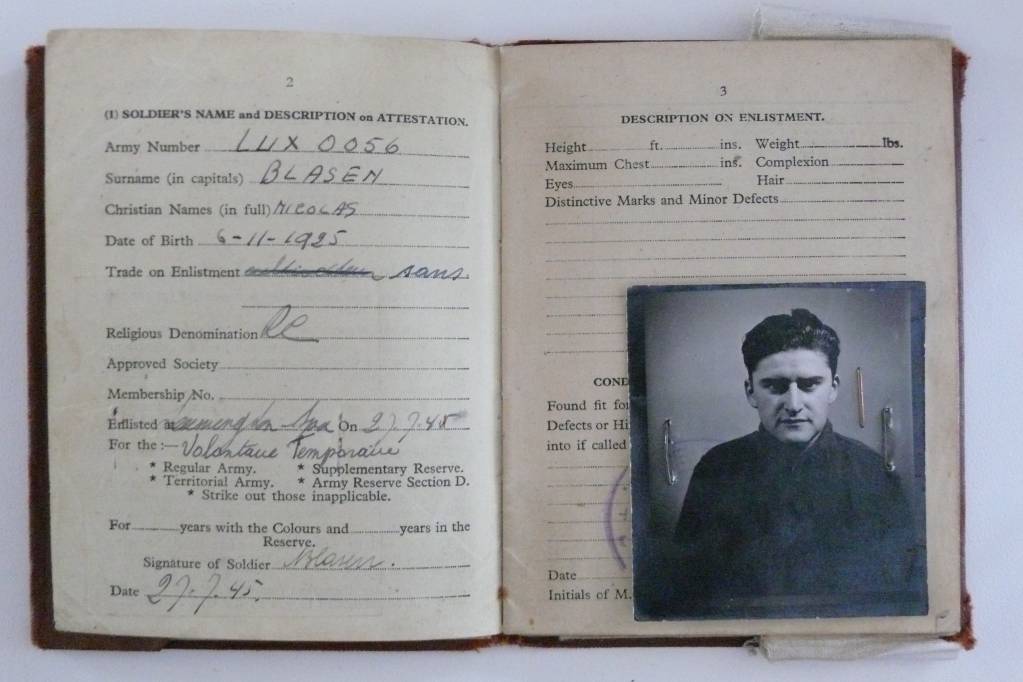 2
(1) SOLDIER'S NAME and DESCRIPTION on ATTESTATION.
Army Number LUX 0056
Surname (in capitals) BLASEN
Christian Names (in full) NICOLAS
Date of Birth 6-11-1925
Trade on Enlistment sans
Religious Denomination RC
Approved Society
Membership No.
Enlisted at Leamington Spa On 27.7.45
For the :— Volontaire Temporaire
* Regular Army. * Supplementary Reserve.
* Territorial Army. * Army Reserve Section D.
* Strike out those inapplicable.
For years with the Colours and years in the
Reserve.
Signature of Soldier NBlasen.
Date 27.7.45.
3
DESCRIPTION ON ENLISTMENT.
Height ft. ins. Weight lbs.
Maximum Chest ins. Complexion
Eyes Hair
Distinctive Marks and Minor Defects
COND
Found fit for
Defects or
into if called
Date
Initials of M.